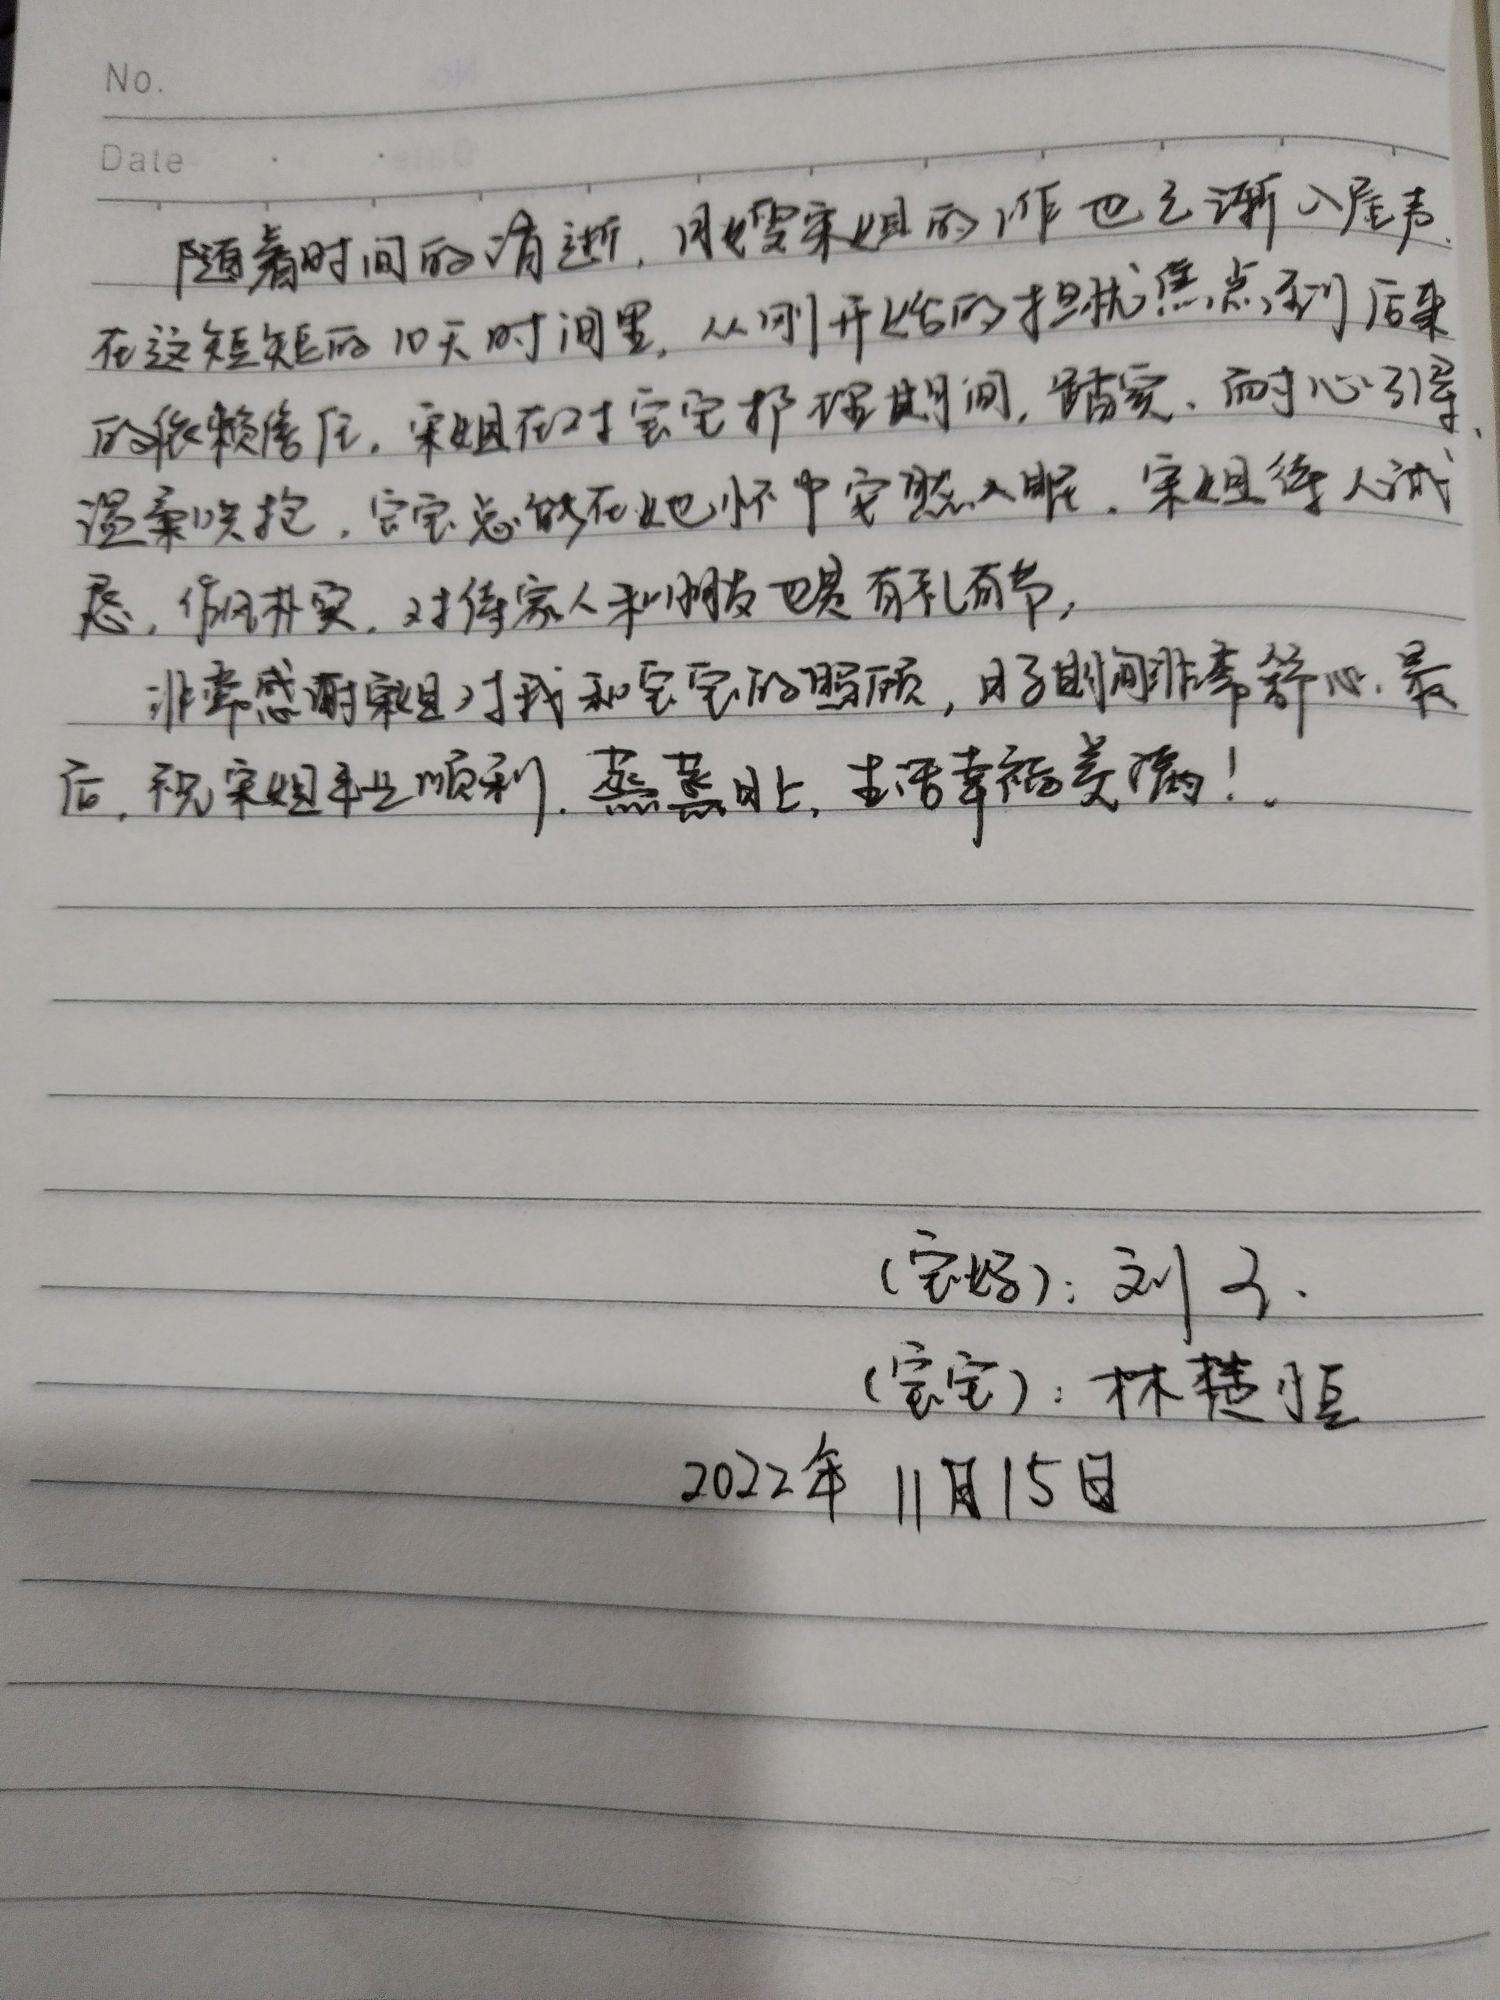 No.
Date
随着时间的消逝，月嫂宋姐的工作也已渐入尾声，
在这短短的10天时间里，从刚开始的担忧焦点到后来
的依赖信任，宋姐在对宝宝护理期间，踏实、耐心引导、
温柔哄抱，宝宝总能在她怀中安然入眠，宋姐待人诚
恳，作风朴实，对待家人和朋友也是有礼有节，
非常感谢宋姐对我和宝宝的照顾，月子期间非常舒心，最
后，祝宋姐事业顺利，蒸蒸日上，生活幸福美满！
（宝妈）：刘
（宝宝）：林楚恒
2022年11月15日